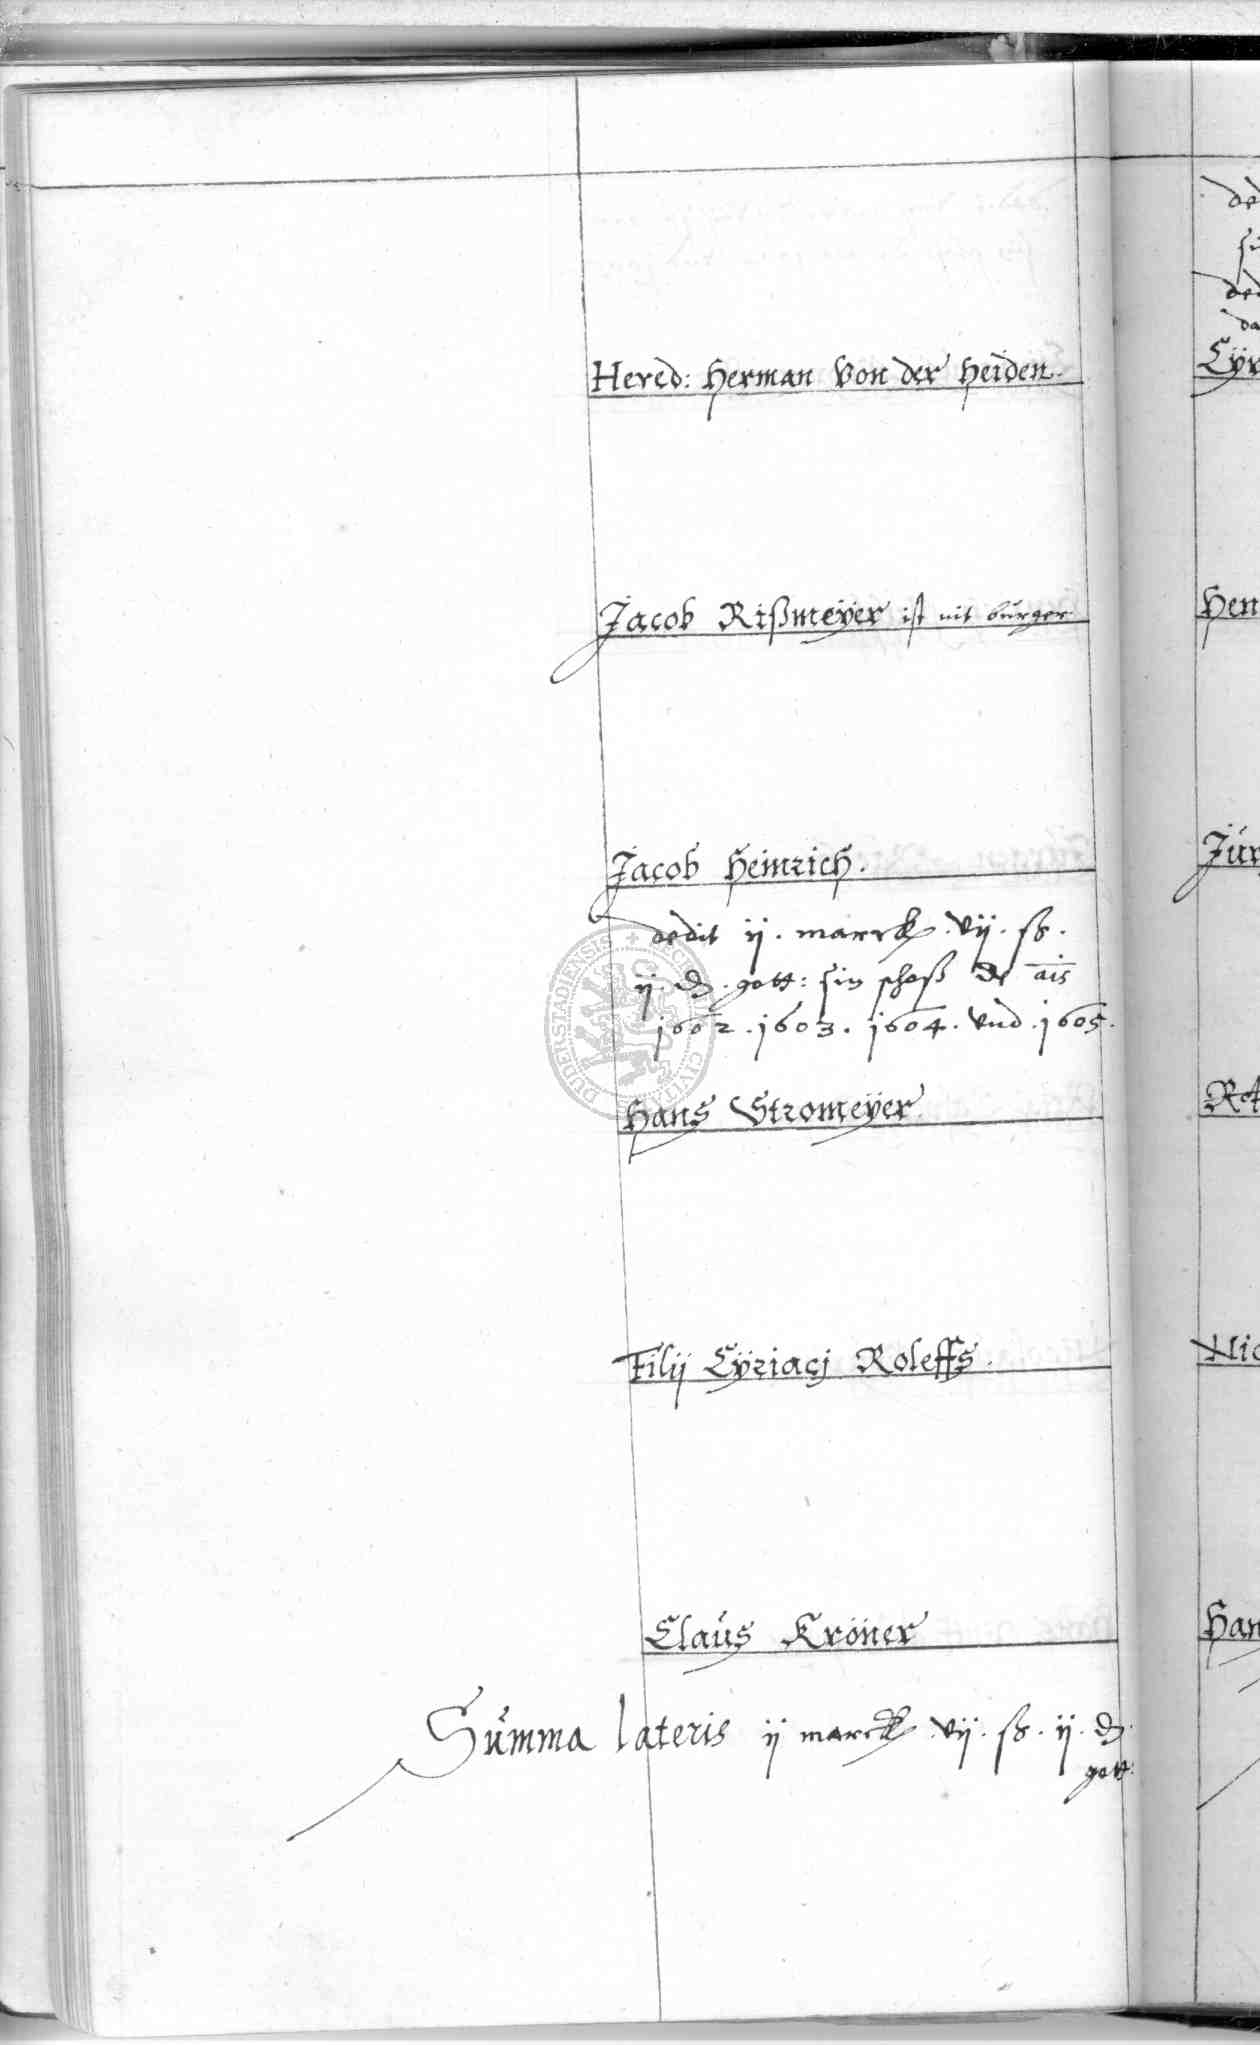 Hered: Herman Von der Heiden.
Jacob Rißmeÿer ist nit burger
Jacob Heinrich.
dedit ij. marck. vij. ß.
ij. d. gott: sin schoß de ais
1602. 1603. 1604. Vnd. 1605.
Hans Stromeÿer
Filij Cÿriacj Roleffs.
Claus Kröner
Summa lateris ij marck vij. ß. ij. d.
gott: